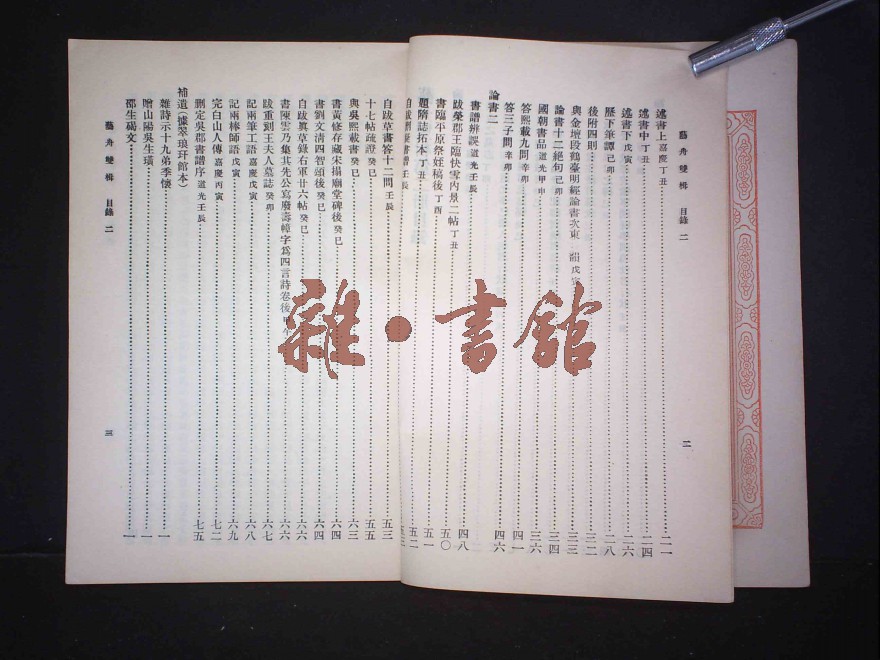 藝舟雙楫 目錄二
二
述書上嘉慶丁丑 二一
述書中丁丑 二四
述書下戊寅 二六
歷下筆譚己卯 二八
後附四則 三二
與金壇段鶴臺明經論書次東 韻戊寅 三三
論書十二絕句己卯 三四
國朝書品道光甲申 三六
答熙載九問辛卯 四一
答三子問辛卯 四六
論書二
書譜辨誤道光壬辰 四八
跋榮郡王臨快雪內景二帖丁丑 五〇
書臨平原祭姪稿後丁酉 五一
題隋誌拓本丁丑 五二
自跋刪擬書譜壬辰 五三
自跋草書答十二問壬辰 五三
十七帖疏證癸巳 五五
與吳熙載書癸巳 六三
書黃修存藏宋搨廟堂碑後癸巳 六四
書劉文清四智頌後癸巳 六四
自跋眞草錄右軍廿六帖癸巳 六六
書陳雲乃集其先公寫廢壽幛字爲四言詩卷後甲午 六六
跋重刻王夫人墓誌癸卯 六七
記兩筆工語嘉慶戊寅 六八
記兩棒師語戊寅 六九
完白山人傳嘉慶丙寅 七二
刪定吳郡書譜序道光壬辰 七五
補遺(據翠琅玕館本)
雜詩示十九弟季懷 一
贈山陽吳生璜 一
邵生碣文 一
藝舟雙楫 目錄二
三
雜·書館